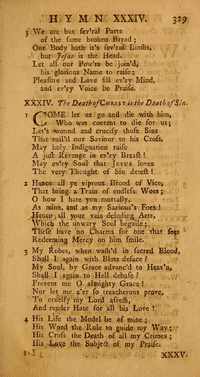 HYMN XXXIV. 329
5 We are but sev'ral Parts
of the same broken Bread;
One Body hath it's sev'ral Limbs,
but Jesus is the Head.
Let all our Pow'rs be join'd,
his glorious Name to raise;
Pleasure and Love fill ev'ry Mind,
and ev'ry Voice be Praise.
XXXIV. The Death of CHRIST is the Death of Sin.
1 COME let us go and die with him,
Who was content to die for us;
Let's wound and crucify those Sins
That nail'd our Saviour to his Cross.
May holy Indignation raise
A just Revenge in ev'ry Breast!
May ev'ry Soul that Jesus loves
The very Thought of Sin detest!
2 Hence all ye vitious Brood of Vice,
That bring a Train of endless Woes;
O how I hate you mortally,
As mine, and as my Saviour's Foes!
Hence, all your vain deluding Arts,
Which the unwary Soul beguile;
These have no Charms for one that sees
Redeeming Mercy on him smile.
3 My Robes, when wash'd in sacred Blood,
Shall I again with Blots deface?
My Soul, by Grace advanc'd to Heav'n,
Shall I again to Hell debase?
Prevent me O almighty Grace!
Nor let me e'er so treacherous prove,
To crucify my Lord afresh,
And render Hate for all his Love!
4 His Life the Model be of mine;
His Word the Rule to guide my Way;
His Cross the Death of all my Crimes;
His Love the Subject of my Praise.
XXXV.